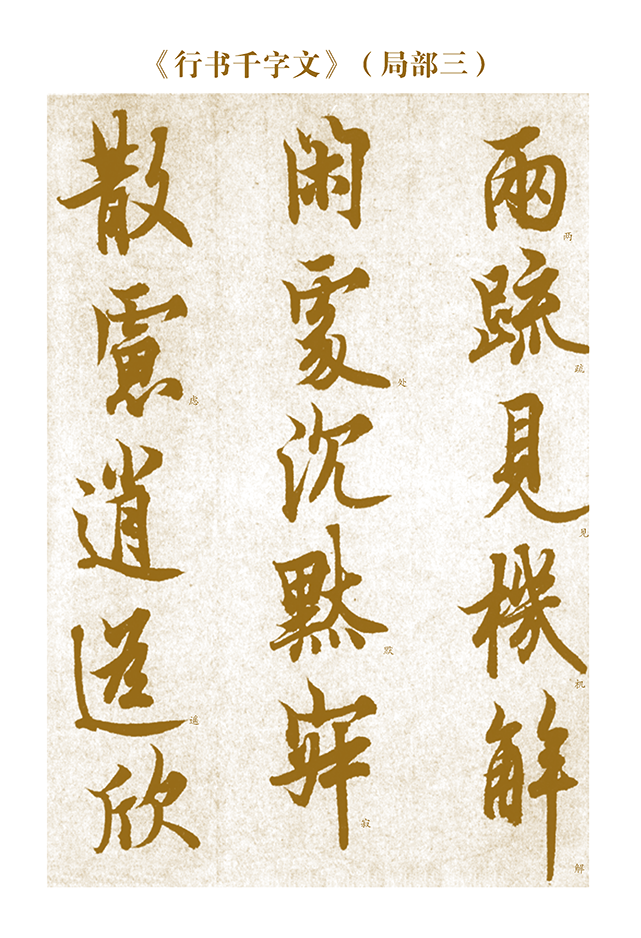 《行书千字文》（局部三）
兩疏見機解
两疏见机解
閑處沉默寂
处默寂
散慮逍遥欣
虑遥